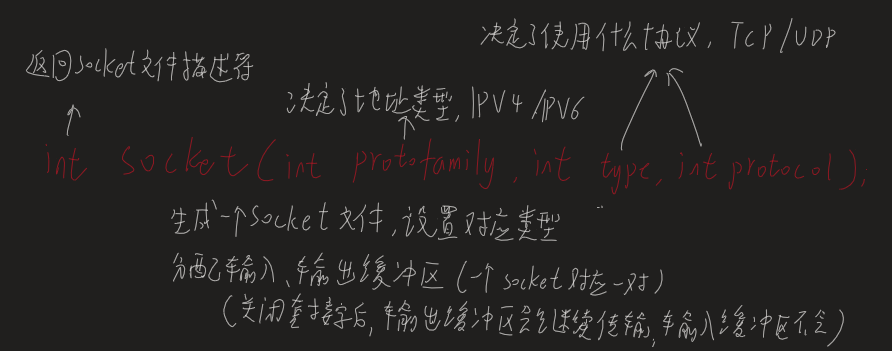 决定了使用什么协议, TCP/UDP
返回socket文件描述符
决定了地址类型, IPV4/IPV6
int socket(int protofamily, int type, int protocol);
生成一个socket文件,设置对应类型
分配输入、输出缓冲区(一个socket对应一对)
(关闭套接字后,输出缓冲区会继续传输,输入缓冲区不会)